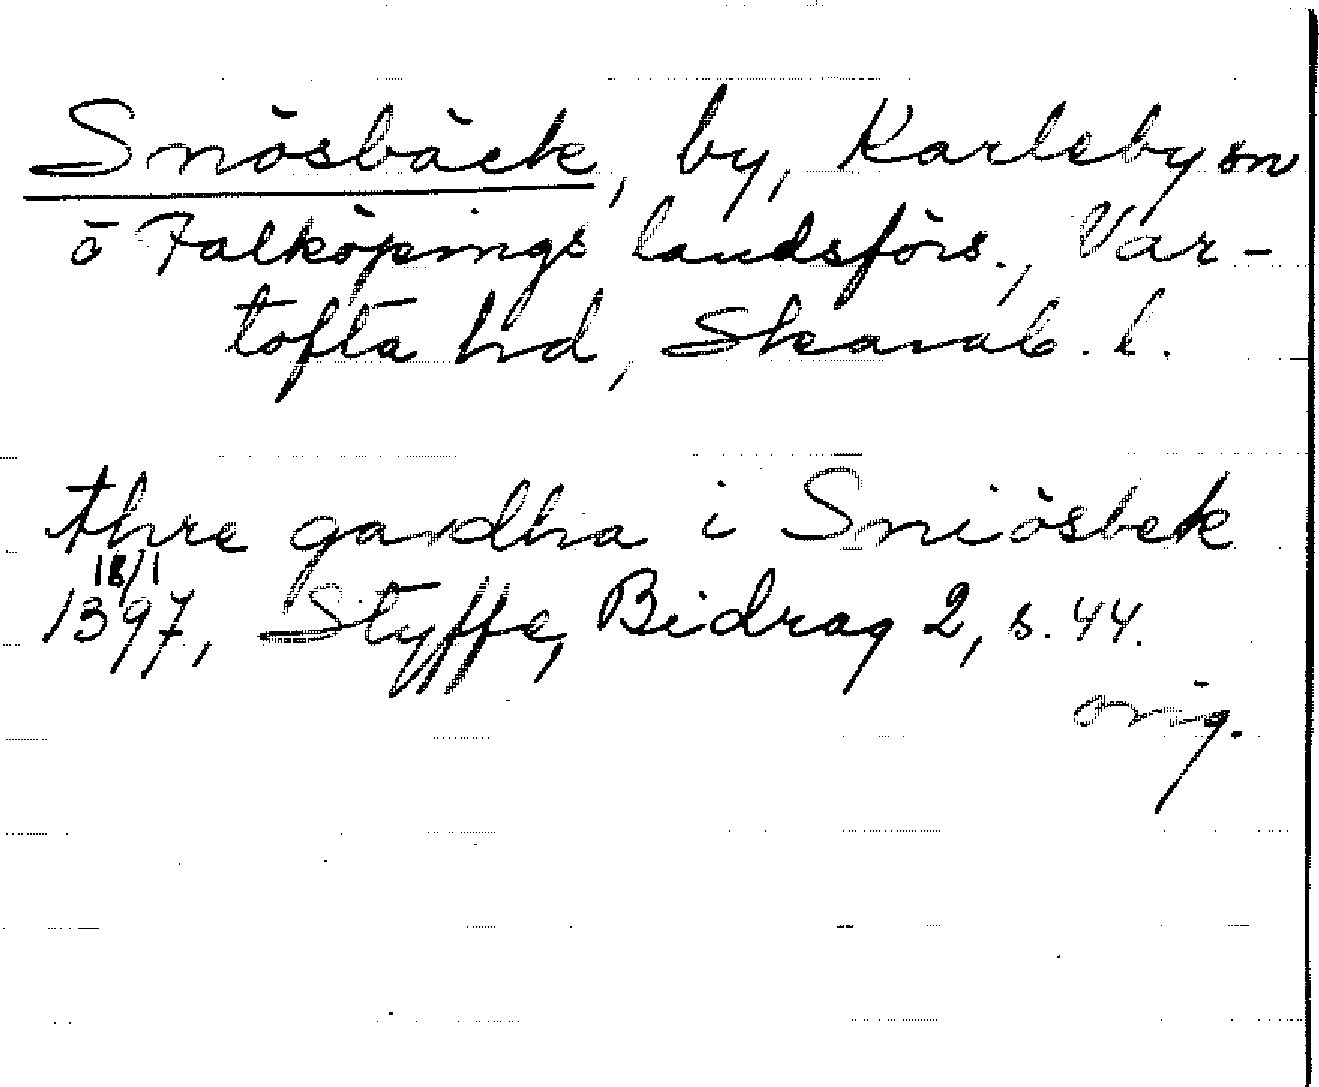 Snösbäck, by, Karleby sn
ö Falköpings landsförs., Var-
tofta hd, Skarab. l.
thre gardha i Sniösbek
18/1
1397, Styffe, Bidrag 2, s. 44.
orig.